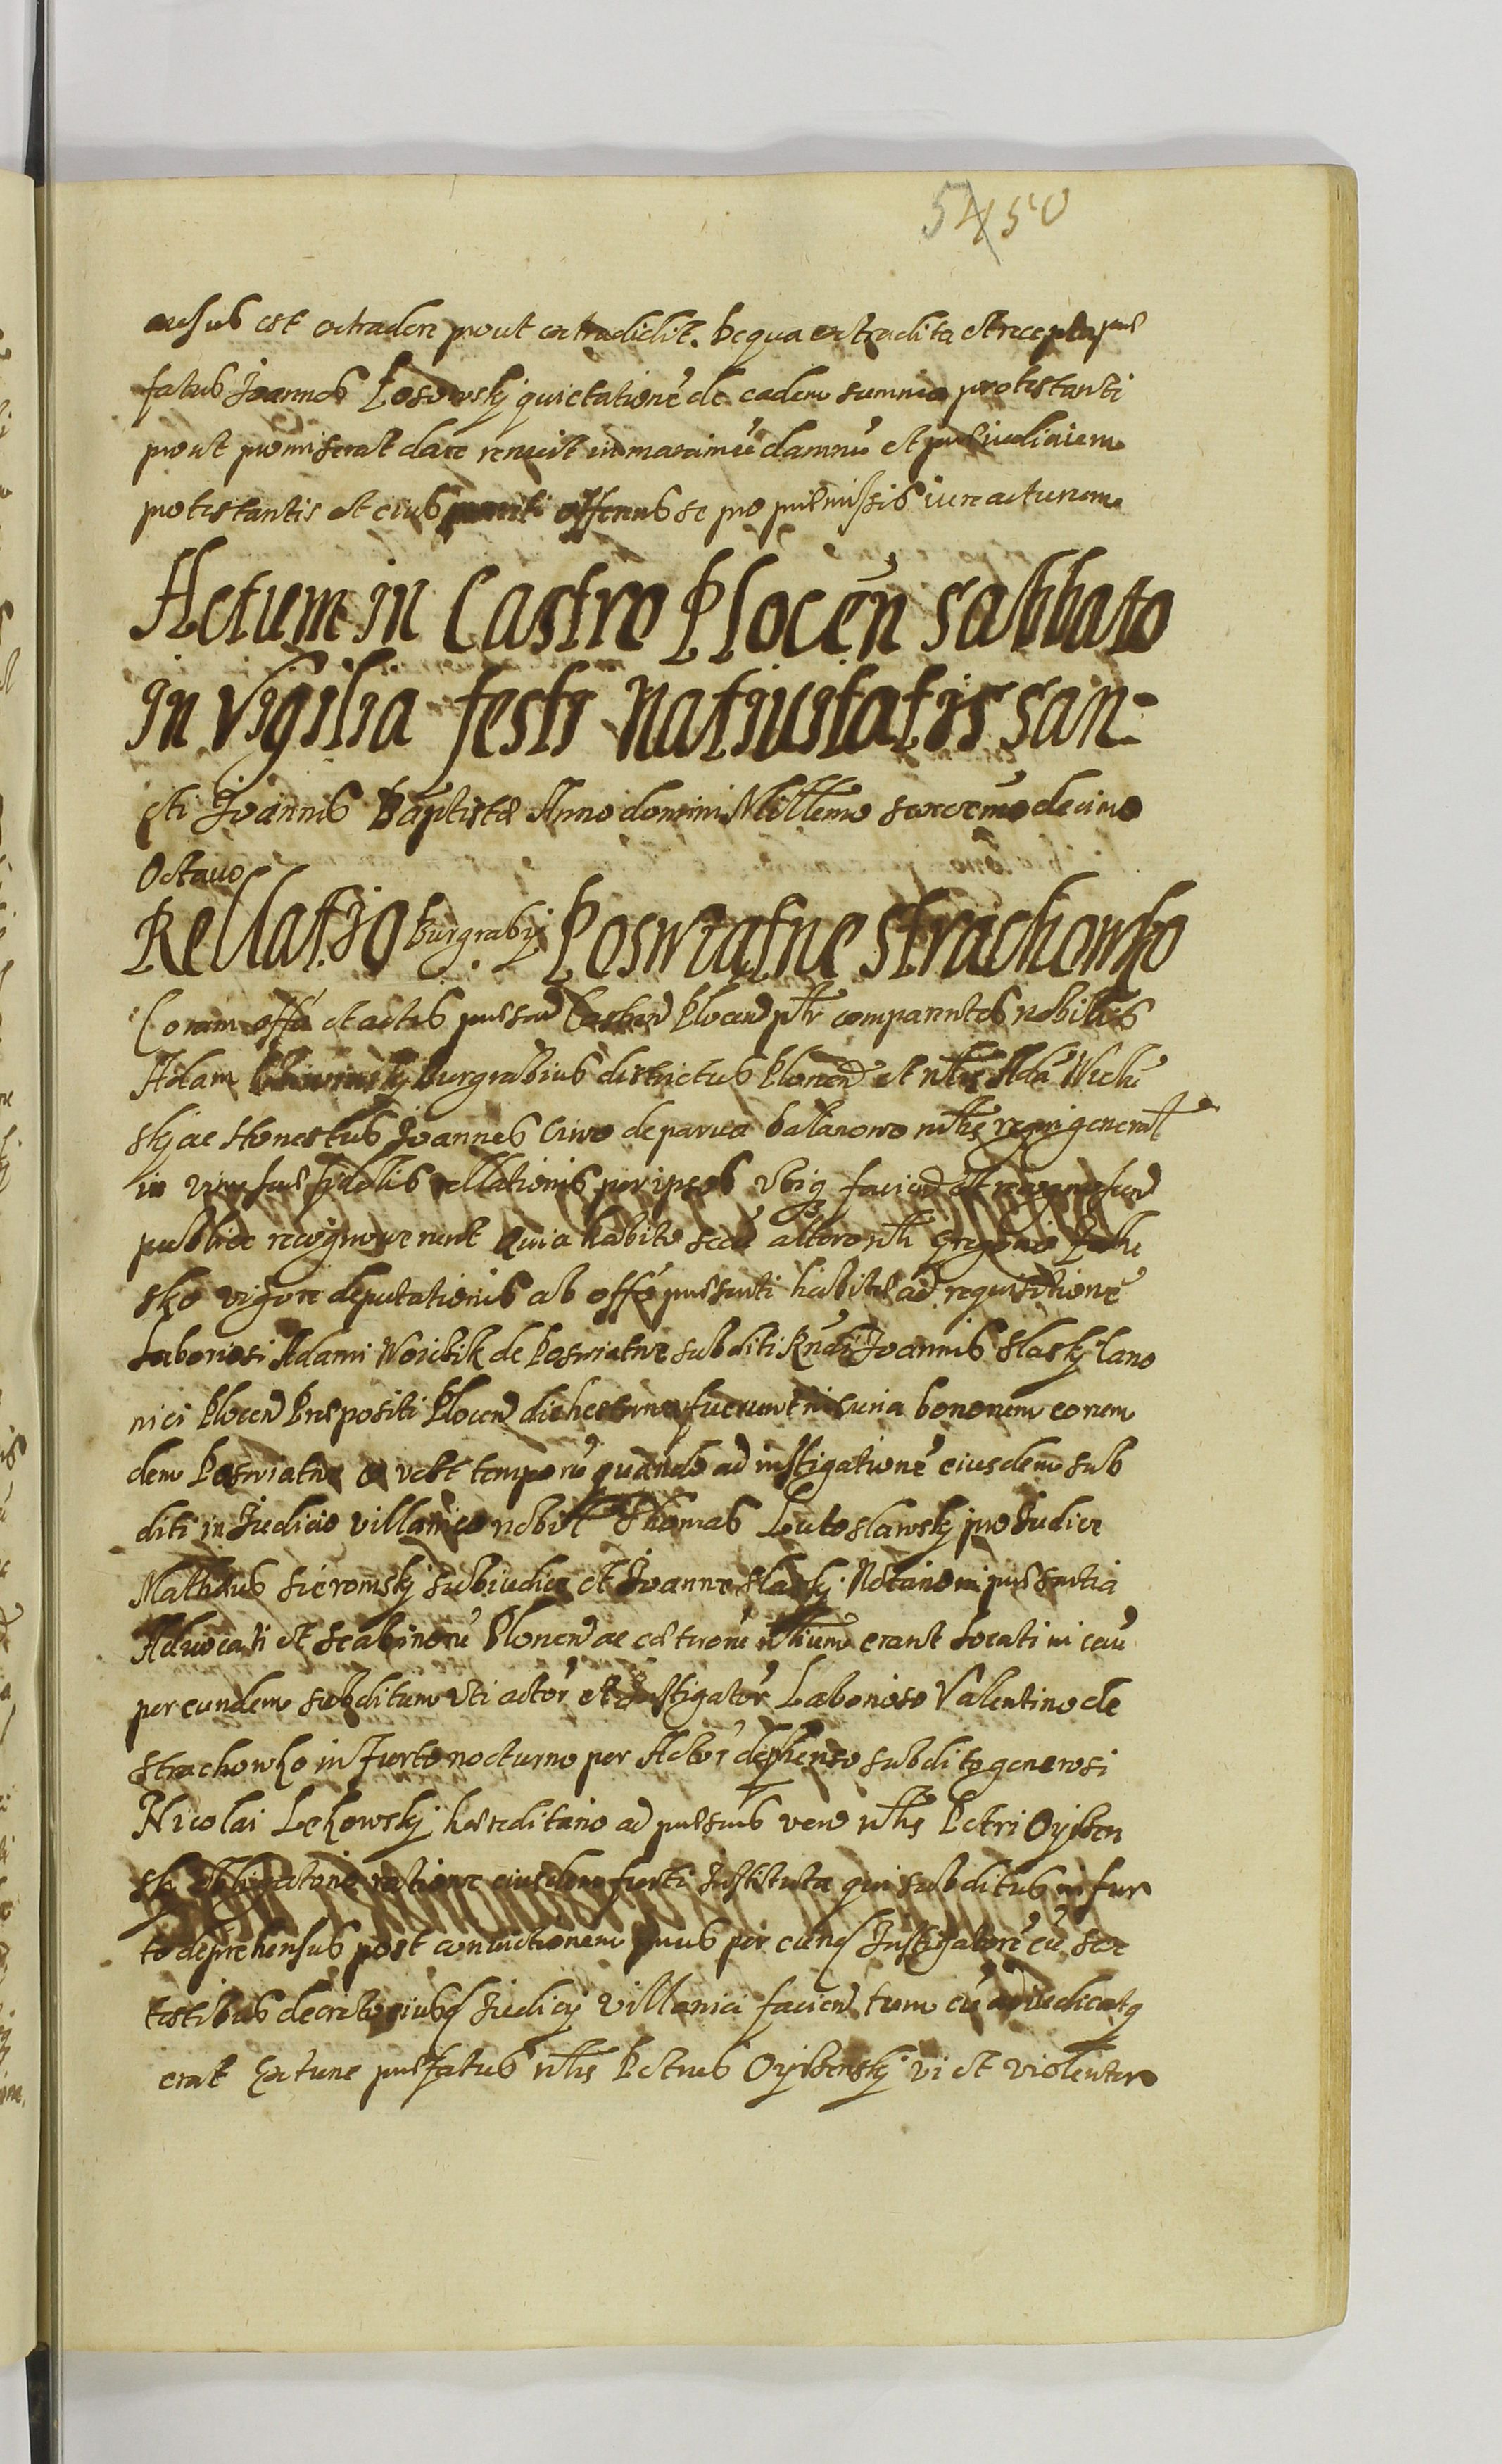 54 50
ausus est extradere prout extradidit. De qua extradita et recepta præ
fatus Joannes Kosowskj quietationē de eadem summa protestanti
prout promiserat dare renuit in maximū damnū et præiudicium
protestantis et eius mariti offerens se pro præmissis iure acturum
Actum in Castro Plocen̄ sabbato
in vigilia festi Natiuitatis san-
cti Joannis Baptistæ Anno domini Millemo sexcemo decimo
Octauo
Rellatio Burgrabij Poswiatne Strachowko
Coram offō et actis præsen Castren Plocen psltr comparentes nobiles
Adam Burgrabius districtus Plonen et nlis Adā
skj ac Honestus Joannes de parua nlis generat
in vim suæ fidelis rellationis per ipsos faciend et
publice recognouerunt Quia habito secū altero nli Gregorio
sko vigore deputationis ab offō præsenti habitæ ad requisitionē
Laboriosi Adami Woicbik de Poswiatne subditi Rndi Joannis Slaskj Cano
nici Plocen Præpositi Plocen die hesterna fuerunt in curia bonorum eorum
dem Poswiatne temporū quando ad instigationē eiusdem sub
diti in Judicio villanico nobil Thomas Lutoslawskj pro Judice
Mathæus Sieromskj subiudice et Joanne Slaskj Notario in præsentia
Aduocati et Scabinorū Plonen ac cæterorū nlium erant locati in cau
per eundem subditum vti actor et Instigator Laborioso Valentino de
Strachowko in furto nocturno per Actor dephenso subdito generosi
Nicolai Lekowskj hæreditario ad præsens vero nlis Petri
skj ratione eiusdem furti Instituta qui subditus in fur
to deprehensus post conuictionem per eund Instigatorē cū sex
testibus decreto eiusd Judicij villanici facien tum cū adiudicatq
erat Ex tunc præfatus nlis Petrus vi et violenter